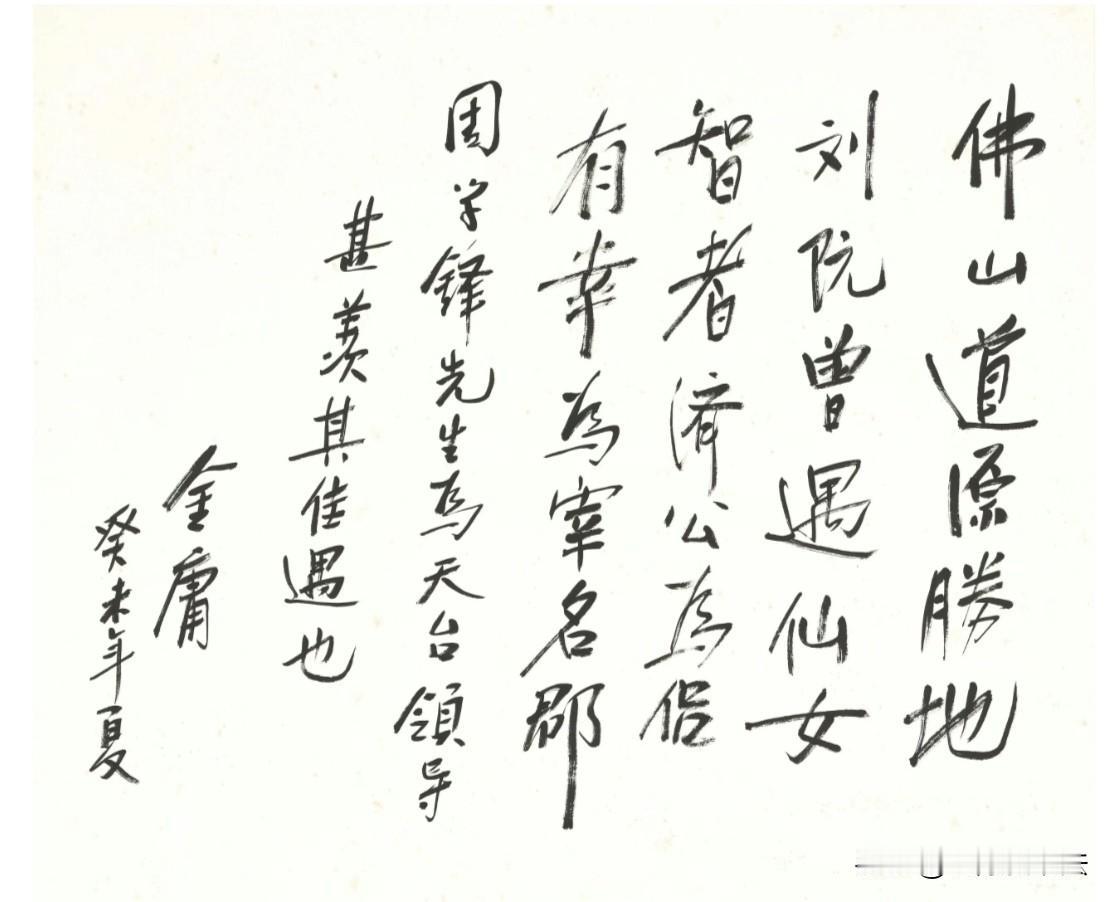 佛山道源勝地
刘阮曾遇仙女
智者済公為侣
有幸為宰名郡
周学鋒先生為天台領导
甚羡其佳遇也
金庸
癸未年夏